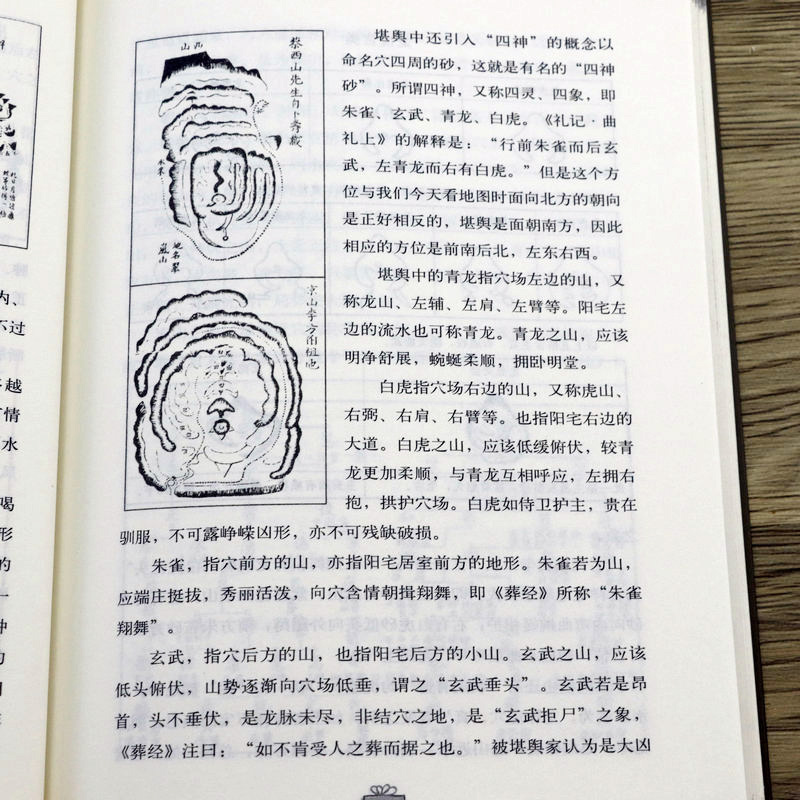 堪舆中还引入“四神”的概念以
命名穴四周的砂，这就是有名的“四神
砂”。所谓四神，又称四灵、四象，即
朱雀、玄武、青龙、白虎。《礼记·曲
礼上》的解释是：“行前朱雀而后玄
武，左青龙而右有白虎。”但是这个方
位与我们今天看地图时面向北方的朝向
是正好相反的，堪舆是面朝南方，因此
相应的方位是前南后北，左东右西。
堪舆中的青龙指穴场左边的山，又
称龙山、左辅、左肩、左臂等。阳宅左
边的流水也可称青龙。青龙之山，应该
明净舒展，蜿蜒柔顺，拥卧明堂。
白虎指穴场右边的山，又称虎山、
右弼、右肩、右臂等。也指阳宅右边的
大道。白虎之山，应该低缓俯伏，较青
龙更加柔顺，与青龙互相呼应，左拥右
抱，拱护穴场。白虎如侍卫护主，贵在
驯服，不可露峥嵘凶形，亦不可残缺破损。
朱雀，指穴前方的山，亦指阳宅居室前方的地形。朱雀若为山，
应端庄挺拔，秀丽活泼，向穴含情朝揖翔舞，即《葬经》所称“朱雀
翔舞”。
玄武，指穴后方的山，也指阳宅后方的小山。玄武之山，应该
低头俯伏，山势逐渐向穴场低垂，谓之“玄武垂头”。玄武若是昂
首，头不垂伏，是龙脉未尽，非结穴之地，是“玄武拒尸”之象，
《葬经》注曰：“如不肯受人之葬而据之也。”被堪舆家认为是大凶